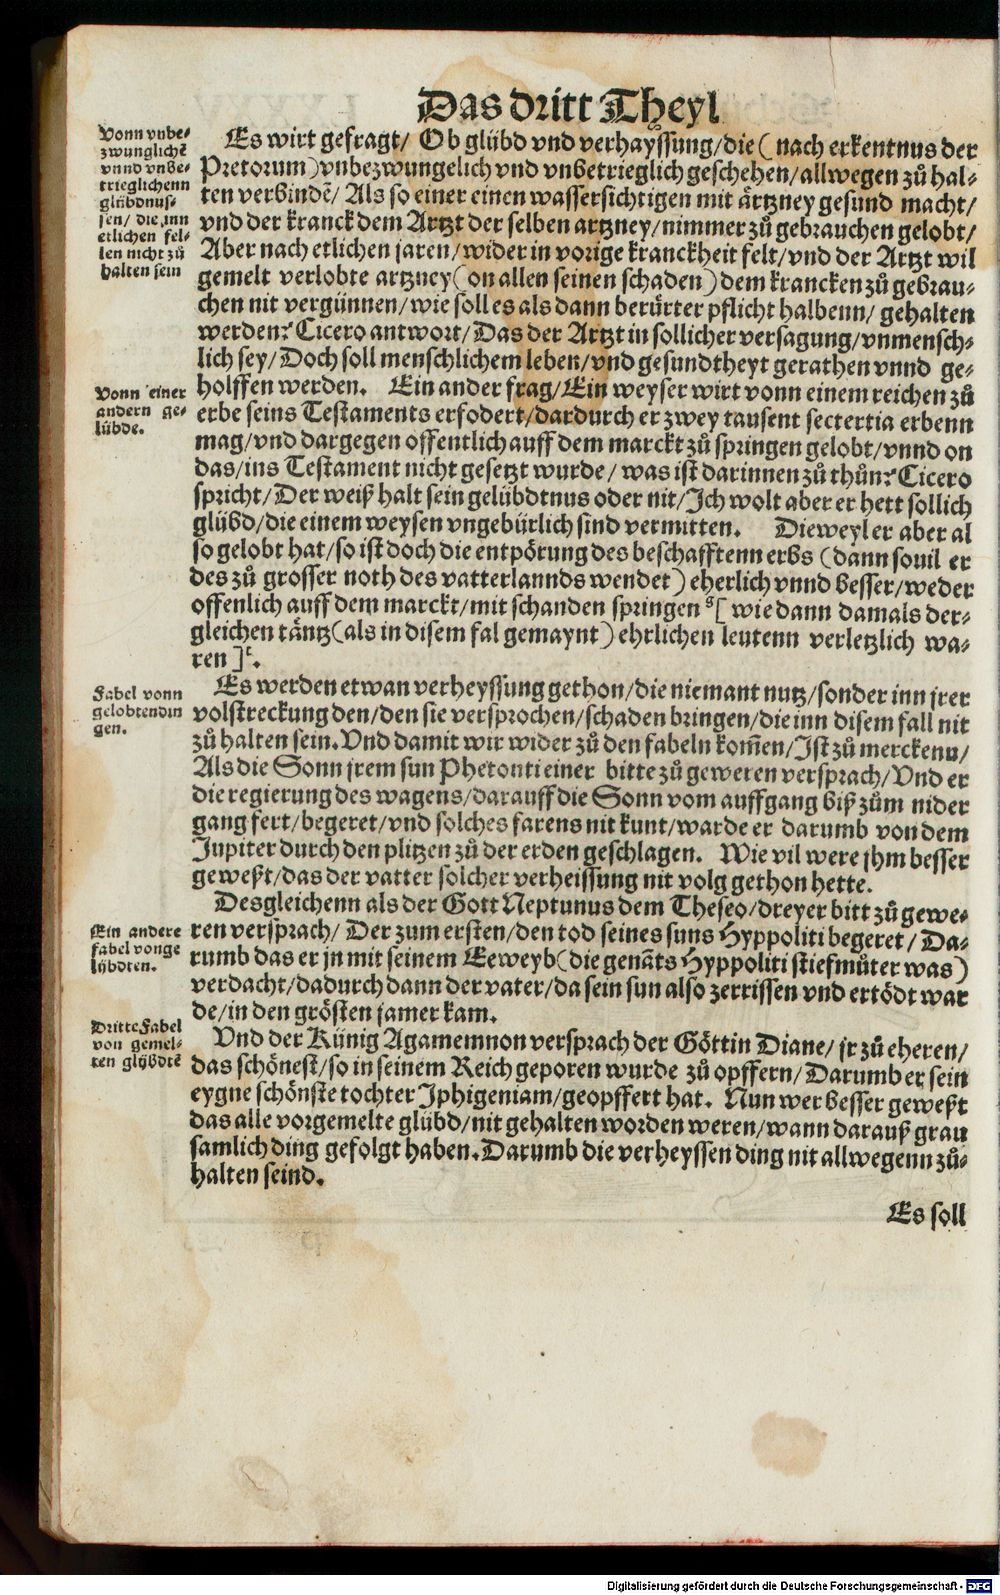 Das dritt Theyl
Vonn vnbe⸗
zwunglichẽ
vnnd vnbe⸗
trieglichenn
glübdnus⸗
sen/ die, inn
etlichen fel⸗
len nicht zů
halten sein
Es wirt gefragt/ Ob glübd vnd verhayssung/die ( nach erkentnus der
Pretorum) vnbezwungelich vnd vnbetrieglich geschehen/allwegen zů hal⸗
ten verbindẽ/ Als so einer einen wassersichtigen mit ärtzney gesund macht/
vnd der kranck dem Artzt der selben artzney/nimmer zů gebrauchen gelobt/
Aber nach etlichen jaren/wider in vorige kranckheit felt/vnd der Artzt wil
gemelt verlobte artzney ( on allen seinen schaden ) dem krancken zů gebrau⸗
chen nit vergünnen/wie soll es als dann berürter pflicht halbenn/ gehalten
werden? Cicero antwort/Das der Artzt in sollicher versagung/vnmensch⸗
lich sey/Doch soll menschlichem leben/vnd gesundtheyt gerathen vnnd ge⸗
holffen werden. Ein ander frag/Ein weyser wirt vonn einem reichen zů
Vonn einer
andern ge⸗
lübde.
erbe seins Testaments erfodert/dardurch er zwey tausent sectertia erbenn
mag/vnd dargegen offentlich auff dem marckt zů springen gelobt/vnnd on
das/ins Testament nicht gesetzt wurde/ was ist darinnen zů thůn? Cicero
spricht/Der weiß halt sein gelübdtnus oder nit/Ich wolt aber er hett sollich
glübd/die einem weysen vngebürlich sind vermitten. Dieweyl er aber al
so gelobt hat/so ist doch die entpörung des beschafftenn erbs (dann souil er
des zů grosser noth des vatterlannds wendet) eherlich vnnd besser/weder
offenlich auff dem marckt/mit schanden springen s[ wie dann damals der⸗
gleichen täntz(als in disem fal gemaynt) ehrlichen leutenn verletzlich wa⸗
ren ]t.
Es werden etwan verheyssung gethon/die niemant nutz/sonder inn jrer
Fabel vonn
gelobten din
gen.
volstreckung den/den sie versprochen/schaden bringen/die inn disem fall nit
zů halten sein. Vnd damit wir wider zů den fabeln kom̃en/Ist zů merckenn/
Als die Sonn jrem sun Phetonti einer bitte zů geweren versprach/Vnd er
die regierung des wagens/darauff die Sonn vom auffgang biß zům nider
gang fert/begeret/vnd solches farens nit kunt/warde er darumb von dem
Jupiter durch den plitzen zů der erden geschlagen. Wie vil were jhm besser
geweßt/das der vatter solcher verheissung nit volg gethon hette.
Desgleichenn als der Gott Neptunus dem Theseo/dreyer bitt zů gewe⸗
Ein andere
fabel von ge
lübdten.
ren versprach/ Der zum ersten/den tod seines suns Hyppoliti begeret/ Da⸗
rumb das er jn mit seinem Eeweyb(die genãts Hyppoliti stiefmůter was)
verdacht/dadurch dann der vater/da sein sun also zerrissen vnd ertödt war
de/in den grösten jamer kam.
Dritte Fabel
von gemel⸗
ten glübdtẽ
Vnd der Künig Agamemnon versprach der Göttin Diane/ jr zů eheren/
das schönest/so in seinem Reich geporen wurde zů opffern/Darumb er sein
eygne schönste tochter Iphigeniam/geopffert hat. Nun wer besser geweßt
das alle vorgemelte glübd/nit gehalten worden weren/wann darauß grau
samlich ding gefolgt haben. Darumb die verheyssen ding nit allwegenn zů⸗
halten seind.
Es soll
Digitalisierung gefördert durch die Deutsche Forschungsgemeinschaft - DFG